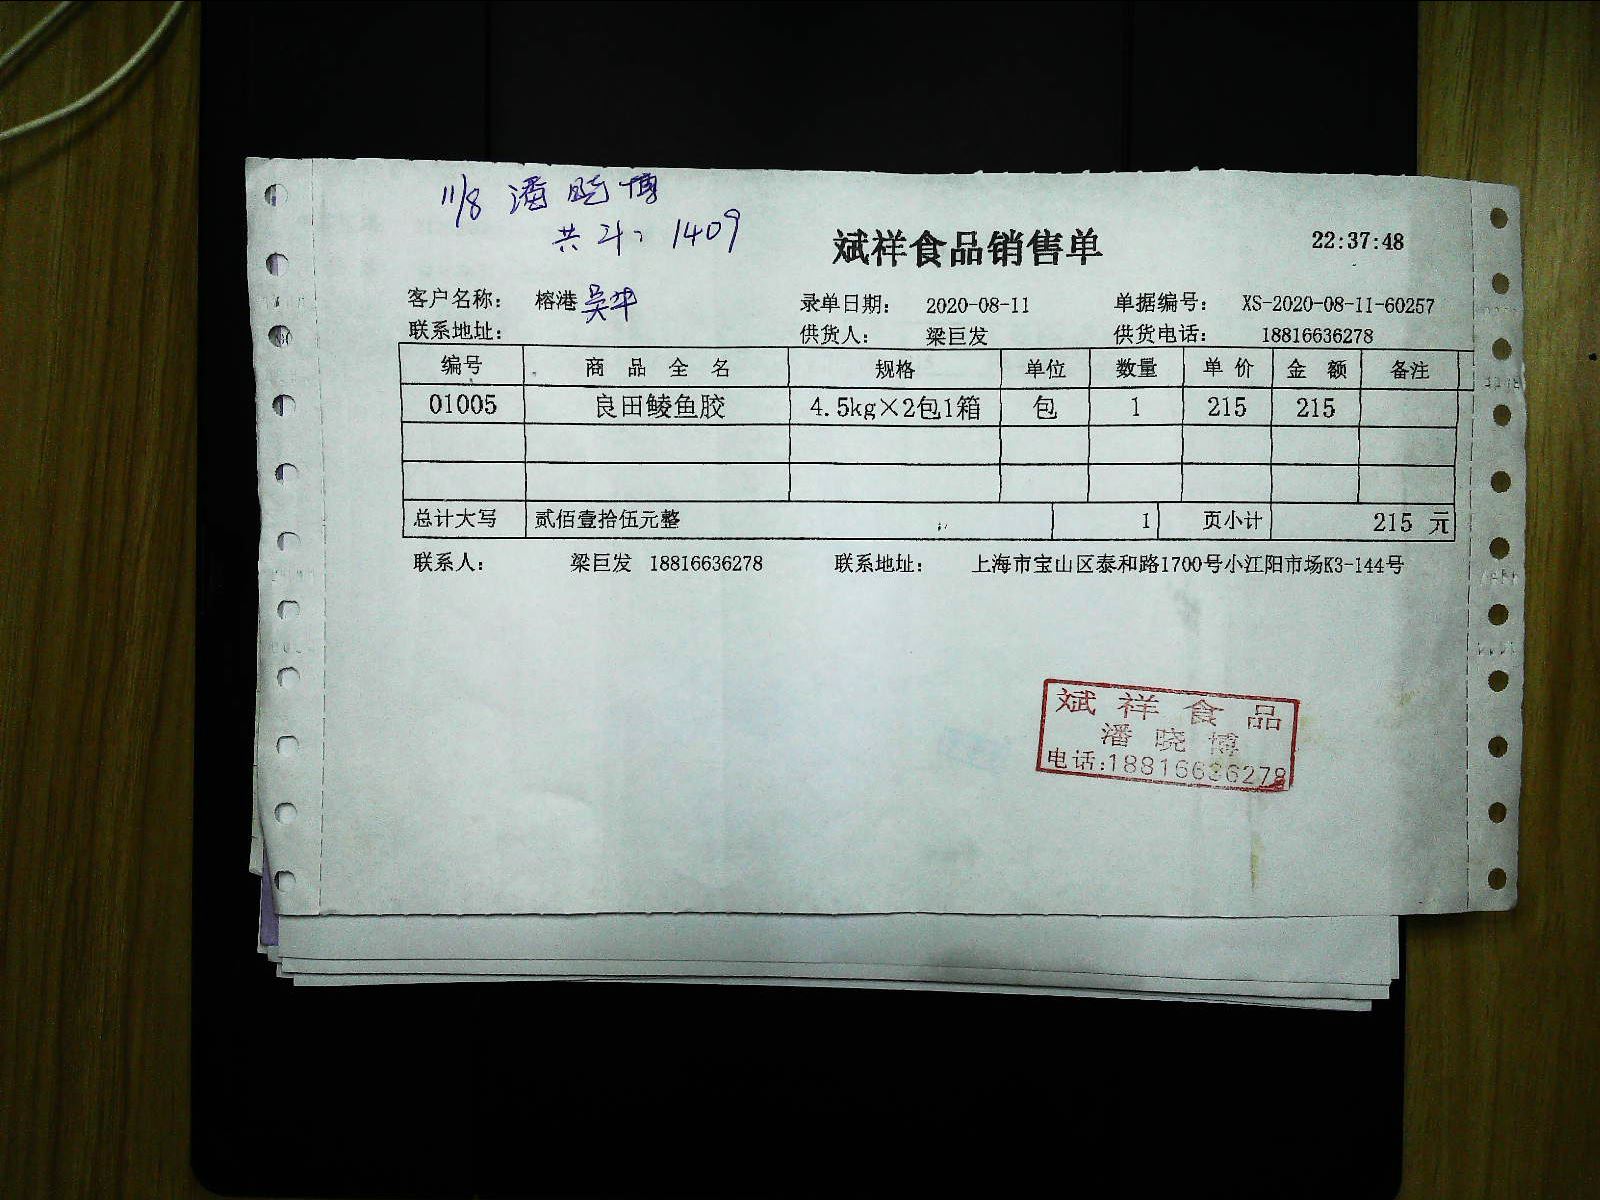 11/8 潘晓博
共计: 1409
斌祥食品销售单 22:37:48
客户名称： 榕港 吴华 录单日期： 2020-08-11 单据编号： XS-2020-08-11-60257
联系地址： 供货人： 梁巨发 供货电话： 18816636278
编号 商品全名 规格 单位 数量 单价 金额 备注
01005 良田鲮鱼胶 4.5kg×2包1箱 包 1 215 215
总计大写 贰佰壹拾伍元整 1 页小计 215 元
联系人： 梁巨发 18816636278 联系地址： 上海市宝山区泰和路1700号小江阳市场K3-144号
斌祥食品
潘晓博
电话:18816636278